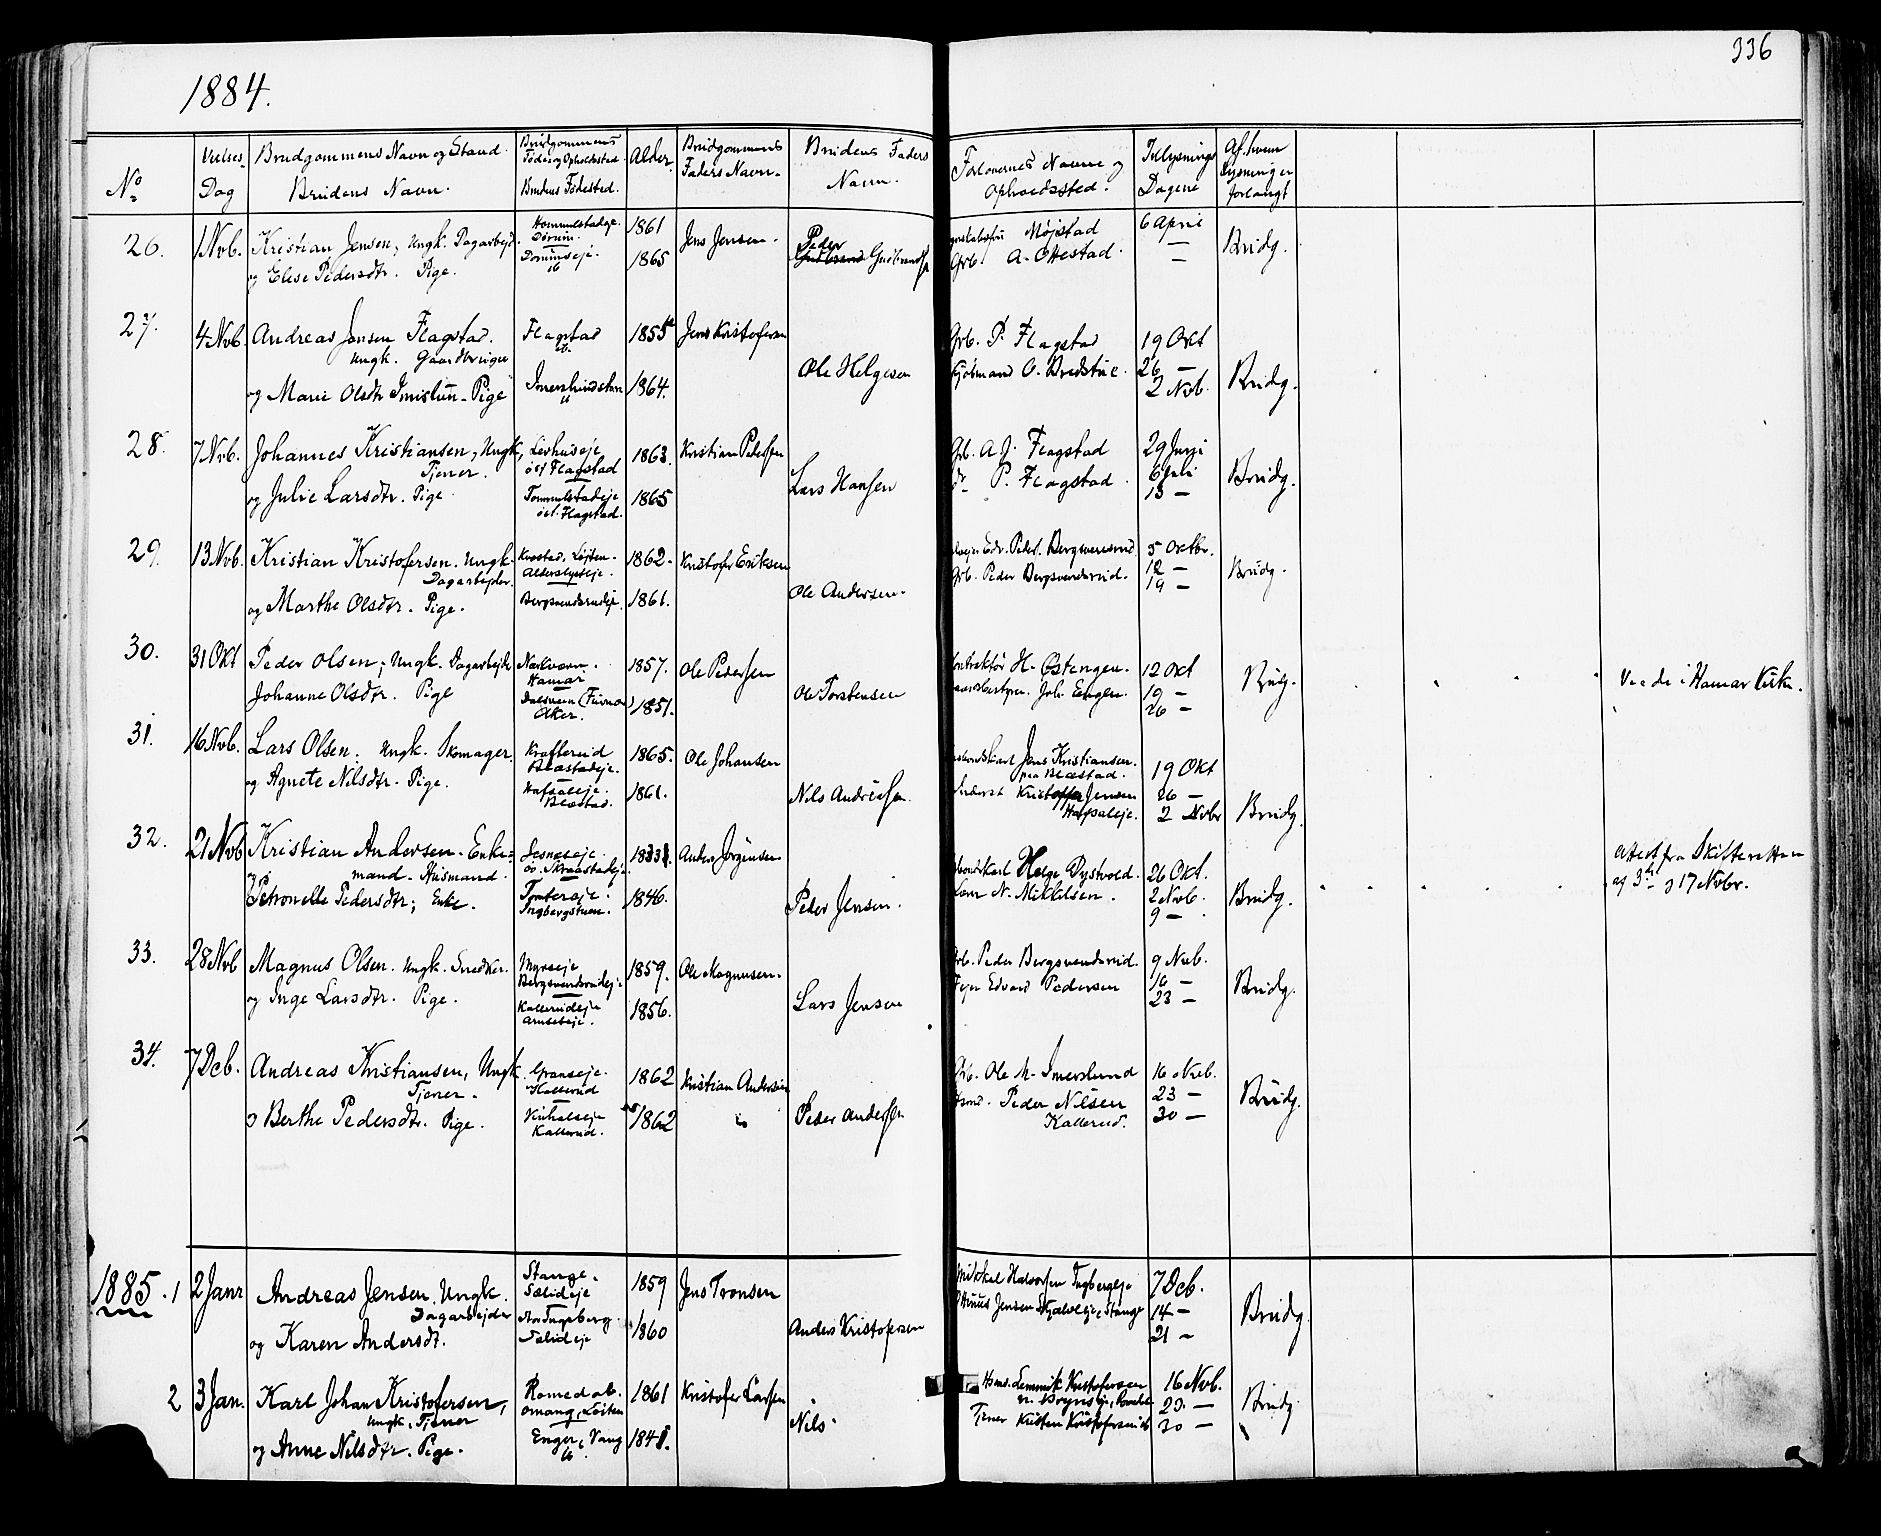 336
1884.
No
Vielses-Dag
Brudgommens Navn og Stand.
Brudens Navn.
Brudgommens Fødes og Opholdssted.
Brudens Fødested.
Alder
Brudgommens Faders Navn.
Brudens Faders Navn.
Forlovernes Navne og Opholdssted.
Tillysnings Dagene
Af hvem Lysning er forlangt
26.
1 Nvb.
Kristian Jensen, Ungk. Dagarbejd.
og Elise Pedersdtr. Pige.
1861
1865
Jens Jensen.
Peder
Gudbrands
Møjstad
Grb. A. Ottestad.
6 April
—
—
Brudg.
27.
4 Nvb
Andreas Jensen Flagstad.
Ungk. Gaardbruger
og Marie Olsdtr Imislun - Pige
Flagstad
Imerslundstuen
1855
1864.
Jens Kristofersen
Ole Helgesen
Grb. P. Flagstad
O. Bredstue.
19 Okt
26 —
2 Nvb.
Brudg.
28.
7 Nvb.
Johannes Kristiansen, Ungk,
Tjener.
og Julie Larsdtr. Pige.
øst Flagstad
Tommelstadeje
øst. Flagstad.
1863.
1865
Kristian Pedersen
Lars Hansen
Grb. A. J. Flagstad
P. Flagstad.
29 Juni
6 Juli
13 —
Brudg.
29.
13 Nvb.
Kristian Kristofersen. Ungk.
Dagarbejder.
og Marthe Olsdtr. Pige.
Løiten.
Bergsvendsrudeje.
1862.
1861.
Kristofer Eriksen
Ole Andersen.
Edv. Peders. Bergsvensrud
Grb. Peder Bergsvendsrud.
5 Oktbr.
12 —
19 —
Brudg.
30.
31 Okt
Peder Olsen; Ungk. Dagarbejde
Johanne Olsdtr. Pige
Hamar
(Furnæs)
Aker.
1857.
1851.
Ole Pedersen
Ole Torstensen
H. Østengen.
Joh. Engen.
12 Okt
19 —
26 —
Brudg.
Viede i Hamar Kirke.
31.
16 Nvb.
Lars Olsen. Ungk. Skomager
og Agnete Nilsdtr. Pige.
Krafterud
Blæstadeje.
Hafsaleje.
Blæstad.
1865.
1861.
Ole Johansen
Nils Andreasen.
Jens Kristiansen.
paa Blæstad.
Kristoffer Jensen
Hafsaleje.
19 Okt
26 —
2 Nvbr
Brudg.
32.
21 Nvb
Kristian Andersen. Enke-
mand. Husmand.
og Petronelle Pedersdtr; Enke.
Ingbergstuen.
1846.
Anders Jørgensen
Peder Jensen.
Helge Dystvold.
N. Mikkelsen.
26 Okt.
2 Nvb.
9 —
Brudg.
Attest fra Skifteretten
af 3die og 17 Nvbr.
33.
28 Nvb
Magnus Olsen. Ungk. Snedker.
og Inge Larsdtr. Pige.
Myrseje
Bergsvendsrudeje
Kallerudeje
1859.
1856.
Ole Magnussen.
Lars Jensen
Grb. Peder Bergsvendsrud.
Edvard Pedersen
9 Nvb.
16 —
23 —
Brudg.
34.
7 Dcb.
Andreas Kristiansen, Ungk
Tjener.
og Berthe Pedersdtr. Pige.
Granseje.
Kallerud
Kallerud.
1862
1862
Kristian Andersen
Peder Andersen
Grb. Ole M. Imerslund
Peder Nilsen
Kallerud.
16 Nvb.
23 —
30 —
Brudg.
1885.
1
2 Janr
Andreas Jensen, Ungk.
Dagarbejder
og Karen Andersdt.
Stange.
Sælideje
Ingeberg
Sælideje
1859
1860
Jens Tronsen
Anders Kristofersen
Mikkel Halvorsen Ingbergeje
Jensen Stange
7 Dcb.
14 —
21 —
Brudg.
2
3 Jan.
Karl Johan Kristofersen,
Ungk, Tjener
og Anne Nilsdtr. Pige.
Romedal.
Løiten
Enger, Vang
1861
1841.
Kristofer Larsen
Nils
Kristofersen
Tjener Kristen Kristofersen
16 Nvb.
23 —
30 —
Brudg.